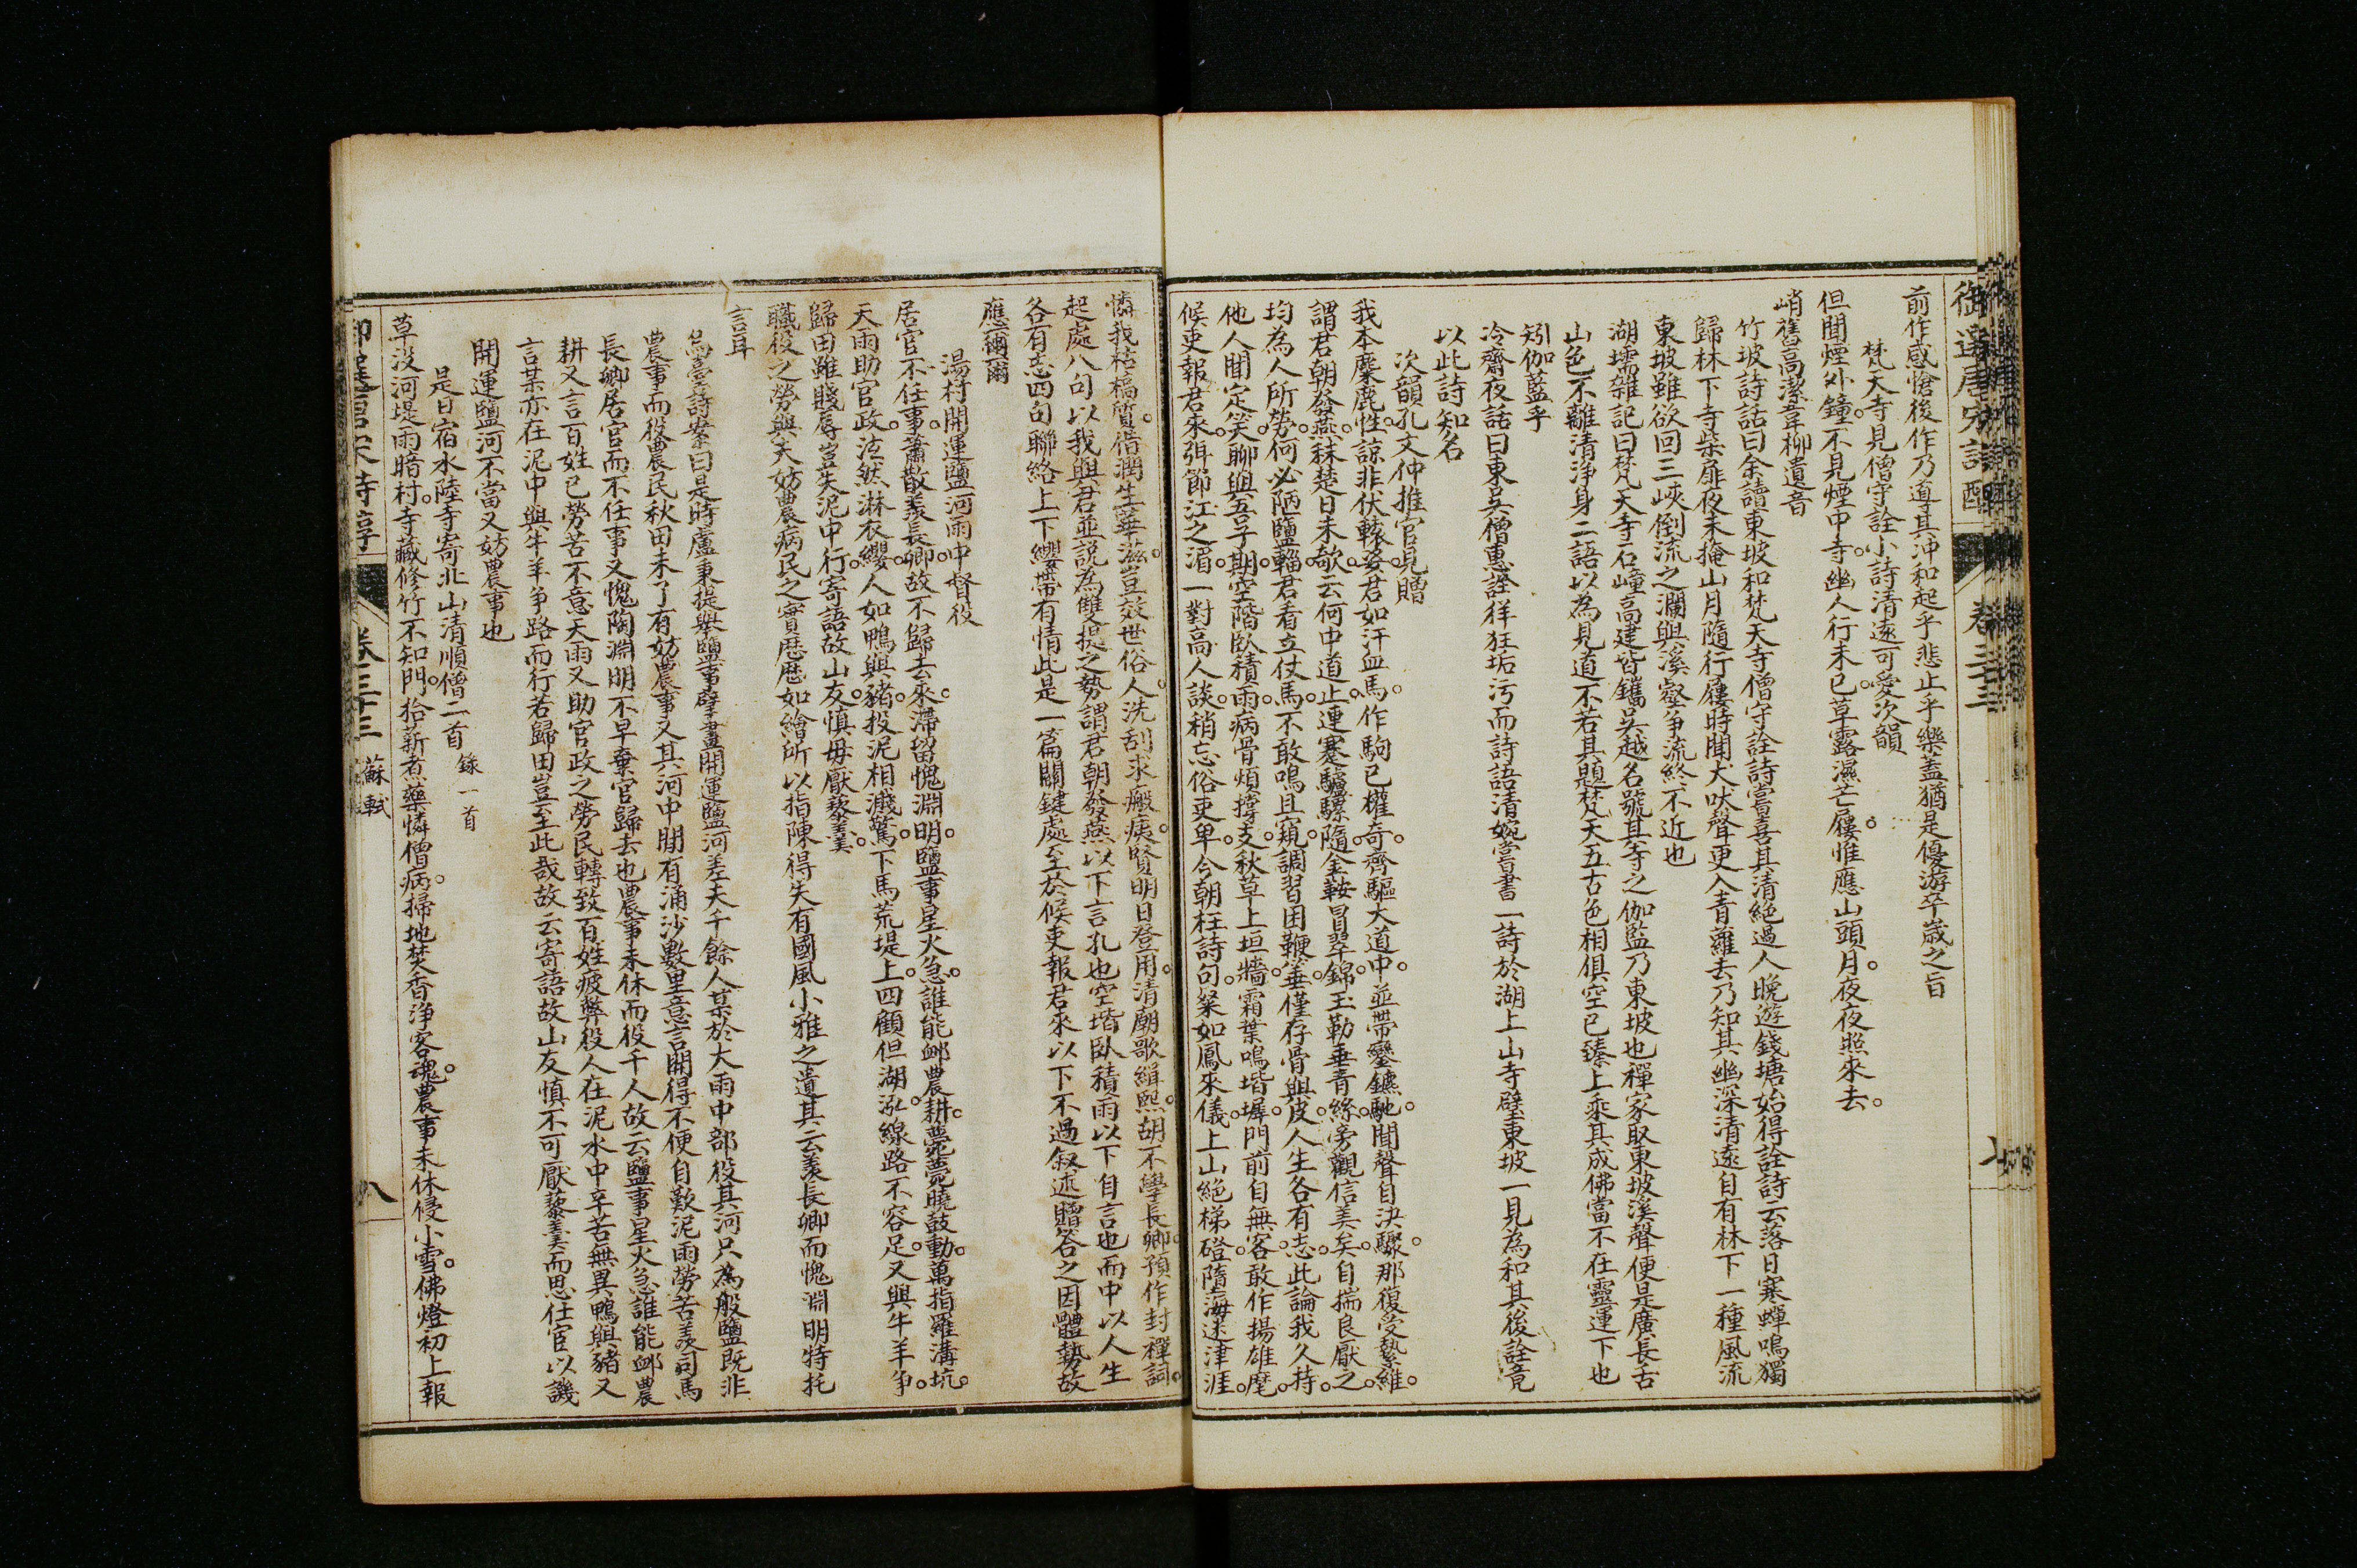 御選唐宋詩醇
卷三十三
七
前作感愴後作乃導其沖和起乎悲止乎樂蓋猶是優游卒歲之旨
梵天寺見僧守詮小詩清遠可愛次韻
但聞煙外鐘不見煙中寺幽人行未已草露濕芒屨惟應山頭月夜夜照來去
峭舊高潔韋柳遺音
竹坡詩話曰余讀東坡和梵天寺僧守詮詩嘗喜其清絕過人晚遊錢塘始得詮詩云落日寒蟬鳴獨
歸林下寺柴扉夜未掩山月隨行屨時聞犬吠聲更入青蘿去乃知其幽深清遠自有林下一種風流
東坡雖欲回三峽倒流之瀾與溪壑爭流終不近也
湖壖雜記曰梵天寺石幢高建皆鐫吳越名號其寺之伽藍乃東坡也禪家取東坡溪聲便是廣長舌
山色不離清淨身二語以為見道不若其題梵天五古色相俱空已臻上乘其成佛當不在靈運下也
矧伽藍乎
冷齋夜話曰東吳僧惠詮佯狂垢污而詩語清婉嘗書一詩於湖上山寺壁東坡一見為和其後詮竟
以此詩知名
次韻孔文仲推官見贈
我本麋鹿性諒非伏轅姿君如汗血馬作駒已權奇齊驅大道中並帶鑾鑣馳聞聲自決驟那復受縶維
謂君朝發燕秣楚日未欹云何中道止連蹇驢騾隨金鞍冒翠錦玉勒垂青絲旁觀信美矣自揣良厭之
均為人所勞何必陋鹽輜君看立仗馬不敢鳴且窺調習困鞭箠僅存骨與皮人生各有志此論我久持
他人聞定笑聊與吾子期空階臥積雨病骨煩撐支秋草上垣牆霜葉鳴堦墀門前自無客敢作揚雄麾
候吏報君來弭節江之湄一對高人談稍忘俗吏卑今朝枉詩句粲如鳳來儀上山絕梯磴墮海迷津涯
憐我枯槁質借潤生華滋豈效世俗人洗刮求瘢痍賢明日登用清廟歌緝熙胡不學長卿預作封禪詞
起處八句以我與君並說為雙提之勢謂君朝發燕以下言孔也空堦臥積雨以下自言也而中以人生
各有志四句聯絡上下纓帶有情此是一篇關鍵處至於候吏報君來以下不過敘述贈答之因體勢故
應爾爾
湯村開運鹽河雨中督役
居官不任事蕭散羨長卿故不歸去來滯留愧淵明鹽事星火急誰能卹農耕薨薨曉鼓動萬指羅溝坑
天雨助官政泫然淋衣纓人如鴨與豬投泥相濺驚下馬荒堤上四顧但湖泓線路不容足又與牛羊爭
歸田雖賤辱豈失泥中行寄語故山友慎毋厭藜羹
職役之勞與夫妨農病民之實歷歷如繪所以指陳得失有國風小雅之遺其云羨長卿而愧淵明特托
言耳
烏臺詩案曰是時盧秉提舉鹽事擘畫開運鹽河差夫千餘人某於大雨中部役其河只為般鹽既非
農事而役農民秋田未了有妨農事又其河中間有涌沙數里意言開得不便自歎泥雨勞苦羨司馬
長卿居官而不任事又愧陶淵明不早棄官歸去也農事未休而役千人故云鹽事星火急誰能卹農
耕又言百姓已勞苦不意天雨又助官政之勞民轉致百姓疲弊役人在泥水中辛苦無異鴨與豬又
言某亦在泥中與牛羊爭路而行若歸田豈至此哉故云寄語故山友慎不可厭藜羹而思仕宦以譏
開運鹽河不當又妨農事也
是日宿水陸寺寄北山清順僧二首 錄一首
草沒河堤雨暗村寺藏修竹不知門拾薪煮藥憐僧病掃地焚香淨客魂農事未休侵小雪佛燈初上報
御選唐宋詩醇
卷三十三 蘇軾
八